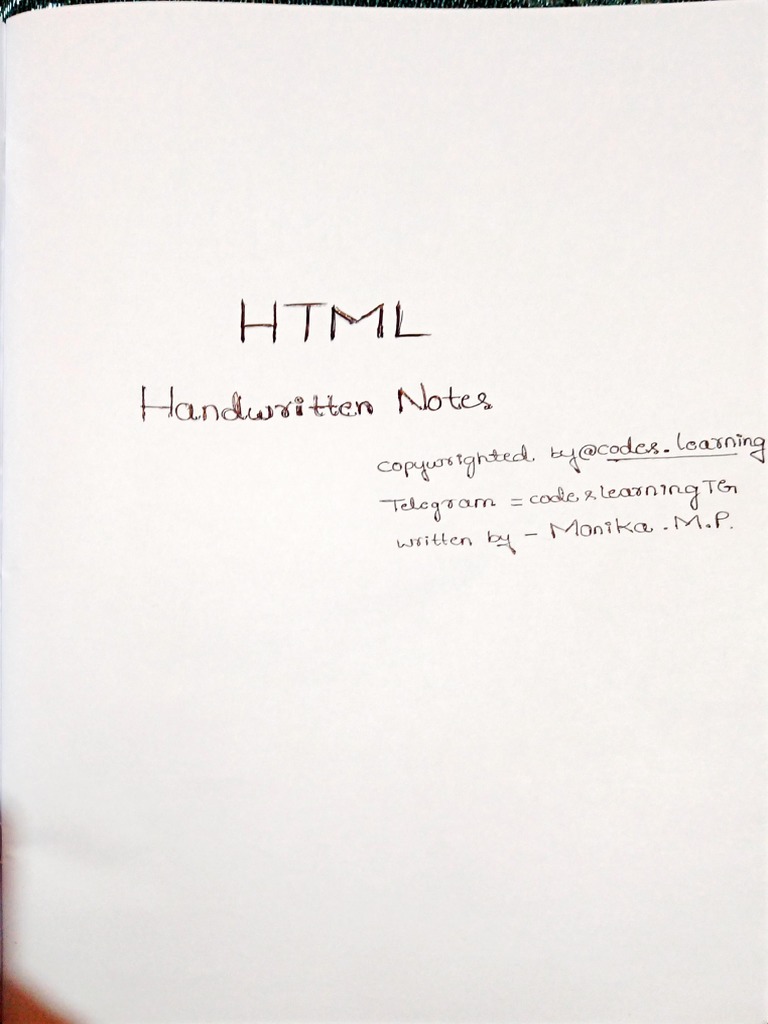 HTML
Handwritten Notes
copywrighted by@codes.learning
Telegram = codeslearningTG
written by - Monika.M.P.